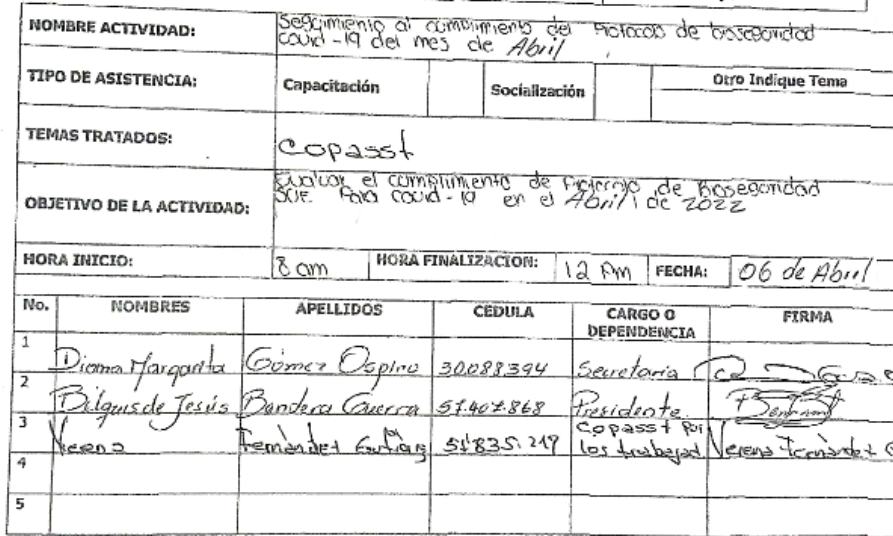 NOMBRE ACTIVIDAD: Seguimiento al cumplimiento del Protocolo de bioseguridad
covid-19 del mes de Abril
TIPO DE ASISTENCIA: Capacitación Socialización Otro Indique Tema
TEMAS TRATADOS: Copasst
OBJETIVO DE LA ACTIVIDAD: Evaluar el cumplimiento de Protocolo de Bioseguridad
Para covid-19 en el Abril de 2022
HORA INICIO: 8 am HORA FINALIZACION: 12 PM FECHA: 06 de Abril
No. NOMBRES APELLIDOS CEDULA CARGO O DEPENDENCIA FIRMA
1 Diana Margarita Gómez Ospino 30.088.394 Secretaria
2 Bilguis de Jesús Bandera Guerra 57.407.868 Presidente
3 Verena Fernández 51'835.219 Copasst Por los trabajad Verena Fernández
4
5